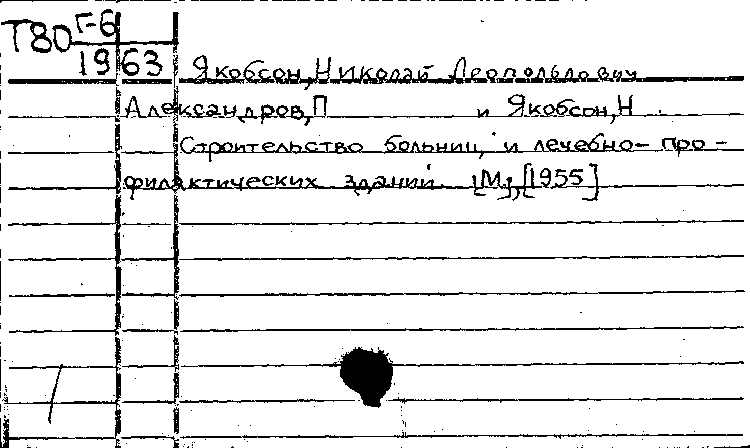 Т80 Г-6
1963 Якобсон, Николай Леопольдович
Александров, П и Якобсон, Н.
Строительство больниц, и лечебно-про-
филактических зданий. [М], [1955]